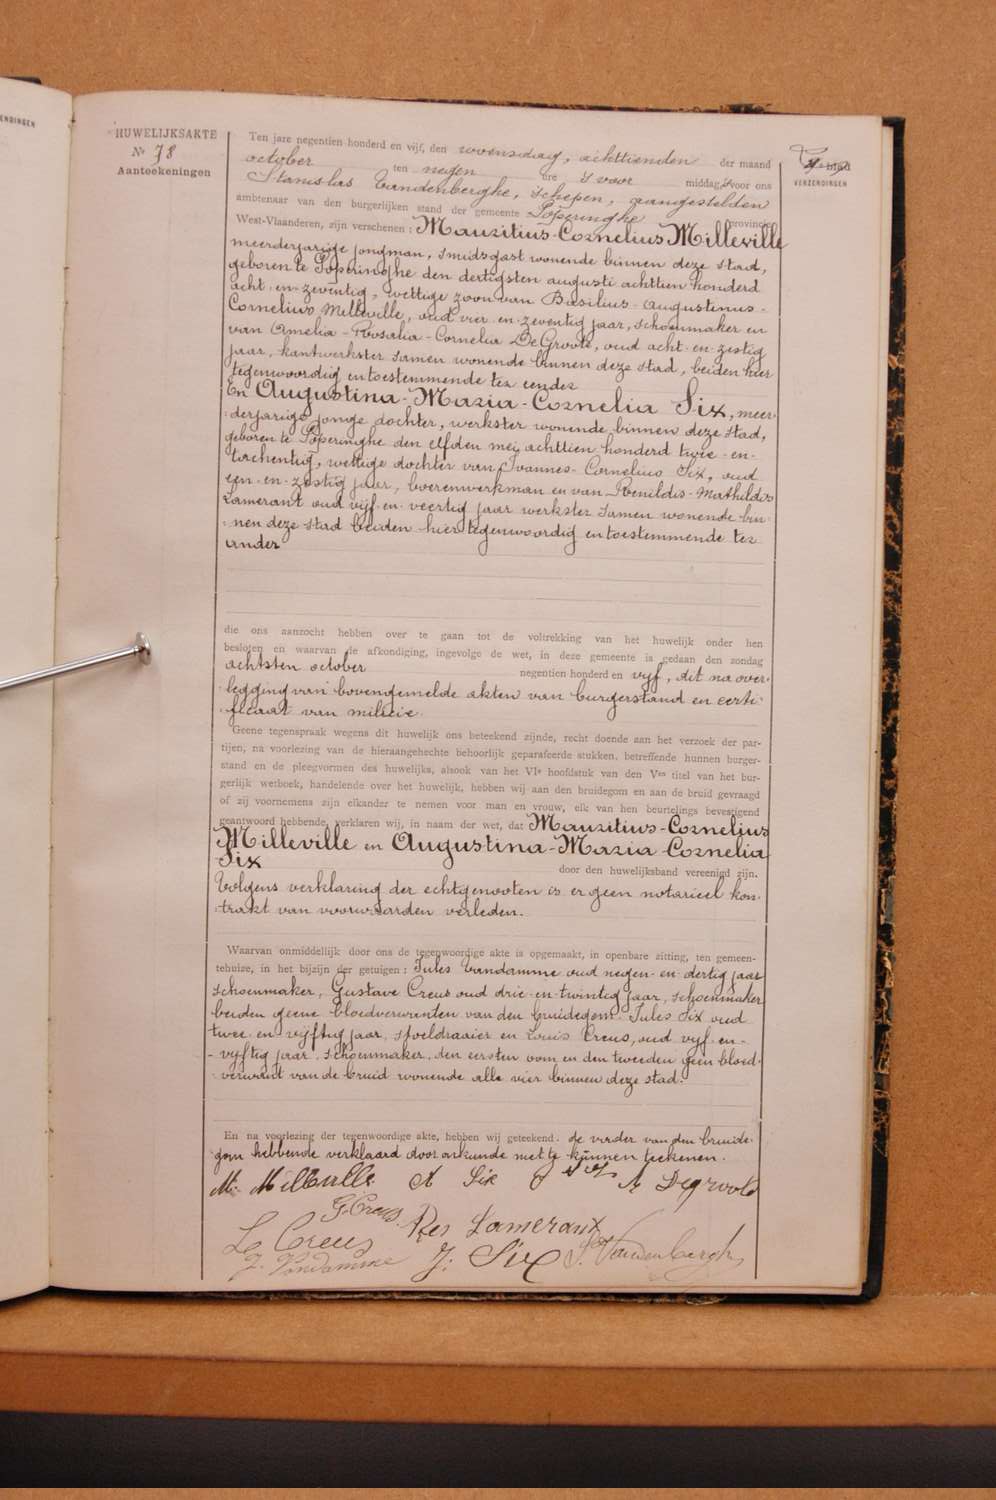 ENDINGEN
HUWELIJKSAKTE
Nr 78
Aanteekeningen
VERZENDINGEN
Ten jare negentien honderd en vijf, den woensdag, achttienden der maand
october ten negen ure 's voor middag, voor ons
Stanislas Vandenberghe, schepen, aangestelden
ambtenaar van den burgerlijken stand der gemeente Poperinghe provincie
West-Vlaanderen, zijn verschenen : Mauritius-Cornelius Milleville
meerderjarige jongman, smidsgast wonende binnen deze stad,
geboren te Poperinghe den dertigsten augusti achttien honderd
acht-en-zeventig, wettige zoon van Basilius-Augustinus-
Cornelius Milleville, oud vier-en-zeventig jaar, schoenmaker en
van Amelia-Rosalia-Cornelia De Groote, oud acht-en-zestig
jaar, kantwerkster samen wonende binnen deze stad, beiden hier
tegenwoordig en toestemmende ter eender
En Augustina-Maria-Cornelia Six, meer-
derjarige jonge dochter, werkster wonende binnen deze stad,
geboren te Poperinghe den elfden mei achttien honderd twee-en-
tachentig, wettige dochter van Ivannes-Cornelius Six, oud
een-en-zestig jaar, boerenwerkman en van Renildis-Mathildis
Lamerant oud vijf-en-veertig jaar werkster samen wonende bin-
nen deze stad beiden hier tegenwoordig en toestemmende ter
ander
die ons aanzocht hebben over te gaan tot de voltrekking van het huwelijk onder hen
besloten en waarvan de afkondiging, ingevolge de wet, in deze gemeente is gedaan den zondag
achtsten october negentien honderd en vijf, dit na over-
legging van bovengemelde akten van burgerstand en certi-
ficaat van milicie.
Geene tegenspraak wegens dit huwelijk ons beteekend zijnde, recht doende aan het verzoek der par-
tijen, na voorlezing van de hieraangehechte behoorlijk geparafeerde stukken, betreffende hunnen burger-
stand en de pleegvormen des huwelijks, alsook van het VIe hoofdstuk van den Ven titel van het bur-
gerlijk wetboek, handelende over het huwelijk, hebben wij aan den bruidegom en aan de bruid gevraagd
of zij voornemens zijn elkander te nemen voor man en vrouw, elk van hen beurtelings bevestigend
geantwoord hebbende, verklaren wij, in naam der wet, dat Mauritius-Cornelius
Milleville en Augustina-Maria-Cornelia
Six door den huwelijksband vereenigd zijn.
Volgens verklaring der echtgenooten is er geen notarieel kon-
trakt van voorwaarden verleden.
Waarvan onmiddellijk door ons de tegenwoordige akte is opgemaakt, in openbare zitting, ten gemeen-
tehuize, in het bijzijn der getuigen : Jules Vandamme oud negen-en-dertig jaar
schoenmaker, Gustave Creus oud drie-en-twintig jaar, schoenmaker
beiden geene bloedverwanten van den bruidegom. Jules Six oud
twee-en-vijftig jaar, stoeldraaier en Louis Creus, oud vijf-en-
vijftig jaar, schoenmaker, den eersten oom en den tweeden geen bloed-
verwant van de bruid wonende alle vier binnen deze stad.
En na voorlezing der tegenwoordige akte, hebben wij geteekend. de vader van den bruide-
gom hebbende verklaard door onkunde niet te kunnen teekenen.
M. Milleville A Six A Degroote
G. Creus. Ren Lamerant
L. Creus J. Six S. Vandenberghe
J. Vandamme